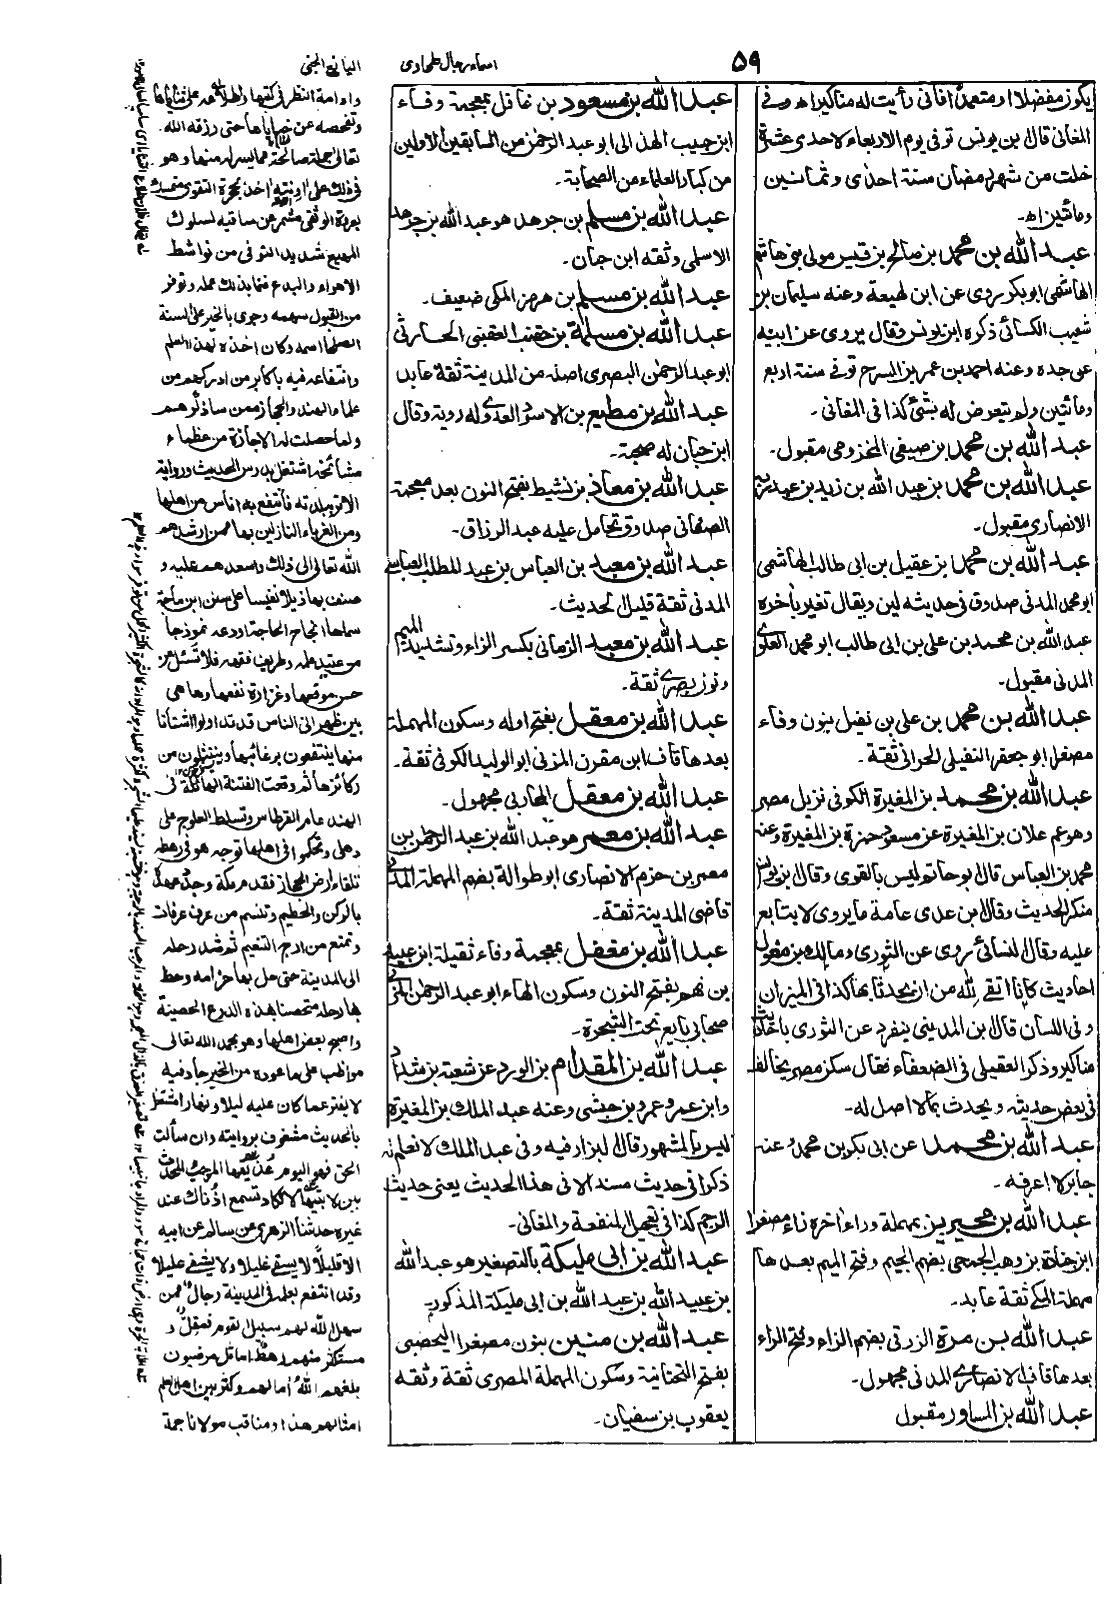 ٥٩
اسماء رجال طحاوى
اليانع الجنى
يكون مفضلا او متعمدا فانى رأيت له مناكير اه وفى
المغانى قال بن يونس توفى يوم الاربعاء لاحدى عشرة
خلت من شهر رمضان سنة احدى وثمانين
ومائتين اه۔
عبد الله بن محمد بن صالح بن قيس مولى بنى هاشم
الهاشمى ابو بكر روى عن ابن لهيعة وعنه سليمان بن
شعيب الكسائى ذكره ابن يونس وقال يروى عن ابيه
عن جده وعنه احمد بن عمر بن السرح توفى سنة اربع
ومائتين ولم يتعرض له بشئ كذا فى المغانى۔
عبد الله بن محمد بن صيفى المخزومى مقبول۔
عبد الله بن محمد بن عبد الله بن زيد بن عبد ربه
الانصارى مقبول۔
عبد الله بن محمد بن عقيل بن ابى طالب الهاشمى
ابو محمد المدنى صدوق فى حديثه لين ويقال تغير باخره
عبد الله بن محمد بن على بن ابى طالب ابو محمد العلوى
المدنى مقبول۔
عبد الله بن محمد بن على بن نفيل بنون وفاء
مصغرا ابو جعفر النفيلى الحرانى ثقة۔
عبد الله بن محمد بن المغيرة الكوفى نزيل مصر
وهو عم علان بن المغيرة عن مسعود حمزة بن المغيرة وعنه
محمد بن العباس قال ابو حاتم ليس بالقوى وقال ابن يونس
منكر الحديث وقال ابن عدى عامة ما يروى لا يتابع
عليه وقال النسائى روى عن الثورى ومالك بن مغول
احاديث كانا اتقى لله من ان يحدثا بها كذا فى الميزان
وفى اللسان قال ابن المدينى ينفرد عن الثورى باحاديث
مناكير وذكره العقيلى فى الضعفاء فقال سكن مصر يخالف
فى بعض حديثه ويحدث بما لا اصل له۔
عبد الله بن محمد عن ابى بكر بن محمد وعنه
جابر لا اعرفه۔
عبد الله بن محيريز بمهملة وراء اخره زاء مصغرا
ابن جنادة بن وهب الجمحى بضم الجيم وفتح الميم بعدها
مهملة المكى ثقة عابد۔
عبد الله بن مرة الزرقى بضم الزاء وفتح الراء
بعدها قاف الانصارى المدنى مجهول۔
عبد الله بن المساور مقبول
عبد الله بن مسعود بن غافل بمعجمة وفاء
ابن حبيب الهذلى ابو عبد الرحمن من السابقين الاولين
من كبار العلماء من الصحابة۔
عبد الله بن مسلم بن جرهد هو عبد الله بن جرهد
الاسلمى وثقه ابن حبان۔
عبد الله بن مسلم بن هرمز المكى ضعيف۔
عبد الله بن مسلمة بن قعنب القعنبى الحارثى
ابو عبد الرحمن البصرى اصله من المدينة ثقة عابد
عبد الله بن مطيع بن الاسود العدوى له روية وقال
ابن حبان له صحبة۔
عبد الله بن معاذ بن نشيط بفتح النون بعد معجمة
الصنعانى صدوق تحامل عليه عبد الرزاق۔
عبد الله بن معبد بن العباس بن عبد المطلب العباسى
المدنى ثقة قليل الحديث۔
عبد الله بن معبد الزمانى بكسر الزاء وتشديد الميم
ونون بصرى ثقة۔
عبد الله بن معقل بفتح اوله وسكون المهملة
بعدها قاف ابن مقرن المزنى ابو الوليد الكوفى ثقة۔
عبد الله بن معقل المحاربى مجهول۔
عبد الله بن معمر هو عبد الله بن عبد الرحمن بن
معمر بن حزم الانصارى ابو طوالة بضم المهملة المدنى
قاضى المدينة ثقة۔
عبد الله بن مغفل بمعجمة وفاء ثقيلة ابن عبيد
بن نهم بفتح النون وسكون الهاء ابو عبد الرحمن المزنى
صحابى بايع تحت الشجرة۔
عبد الله بن المقدام بن الورد عن شعبة بن شداد
وابن عمر وعمرو بن حبشى وعنه عبد الملك بن المغيرة
ليس بالمشهور قال البزار فيه وفى عبد الملك لا نعلم انه
ذكرا فى حديث مسند الا فى هذا الحديث يعنى حديث
الرجم كذا فى تعجيل المنفعة والمغانى۔
عبد الله بن ابى مليكة بالتصغير هو عبد الله
بن عبيد الله بن عبد الله بن ابى مليكة المذكور۔
عبد الله بن منين بنون مصغرا اليحصبى
بفتح التحتانية وسكون المهملة المصرى ثقة وثقه
يعقوب بن سفيان۔
وادامة النظر فى كتبها
وتفحصه عن خباياها حتى رزقه الله
تعالى جملة صالحة مما يسرله منها وهو
فى ذلك على اونته اخذ بحجزة التقوى متمسك
بعروة الوثقى مشمر عن ساقيه لسلوك
المهيع شديد التوقى من نواشط
الاهواء والبدع فنما بذلك عمله وتوفر
من القبول سهمه وجرى بالخير على السنة
الصلحاء اسمه وكان اخذه لهذا العلم
وانتفاعه فيه باكابر من ادركهم من
علماء الهند والحجاز ممن ساذكرهم
ولما حصلت له الاجازة من عظماء
مشائخه اشتغل بدرس الحديث وروايته
الاثر ببلدته فانتفع به اناس من اهلها
ومن الغرباء النازلين بها ممن ارشدهم
الله تعالى الى ذلك واسعدهم عليه و
صنف بها ذيلا نفيسا على سنن ابن ماجة
سماها انجاح الحاجة اودعه نموذجا
من عتيد علمه وطريف فقهه فلا تسئل عن
حسن موقعها وغزارة نفعها وها هى
بين ظهرانى الناس قد تداولوا اشتاتا
منها ينتفعون برغائبها وينتثلون من
ركائزها ثم وقعت الفتنة الهائلة فى
الهند عام القرطاس وتسلط العلوج على
دهلى وتحكموا فى اهلها توجه هو فى رهطه
تلقاء ارض الحجاز فقدم مكة وجدد عهدا
بالركن والحطيم وتنسم من عرف عرفات
وتمتع من ارج التنعيم ثم شد رحله
الى المدينة حتى حل بها حزامه وحط
بها رحله متحصنا بهذه الدرع الحصينة
واصبح بعض اهلها وهو بحمد الله تعالى
مواظب على ما عوده من الخير جاد فيه
لا يفتر عما كان عليه ليلا ونهارا اشتغل
بالحديث مشغوف بروايته وان سألت
الحق فهو اليوم عذيقها المرجب المحدث
بين لابتيها لا تكاد تسمع اذناك عند
غيره حدثنا الزهرى عن سالم عن ابيه
الا قليلا لا يسقى غليلا ولا يشفى عليلا
وقد انتفع بعلمه فى المدينة رجال ممن
سهل الله لهم سبيل القوم فمقل و
مستكثر منهم رهط اماثل مرضيون
بلغهم الله امالهم وكثر بين اهل العلم
امثالهم هذا ومناقب مولانا جمة